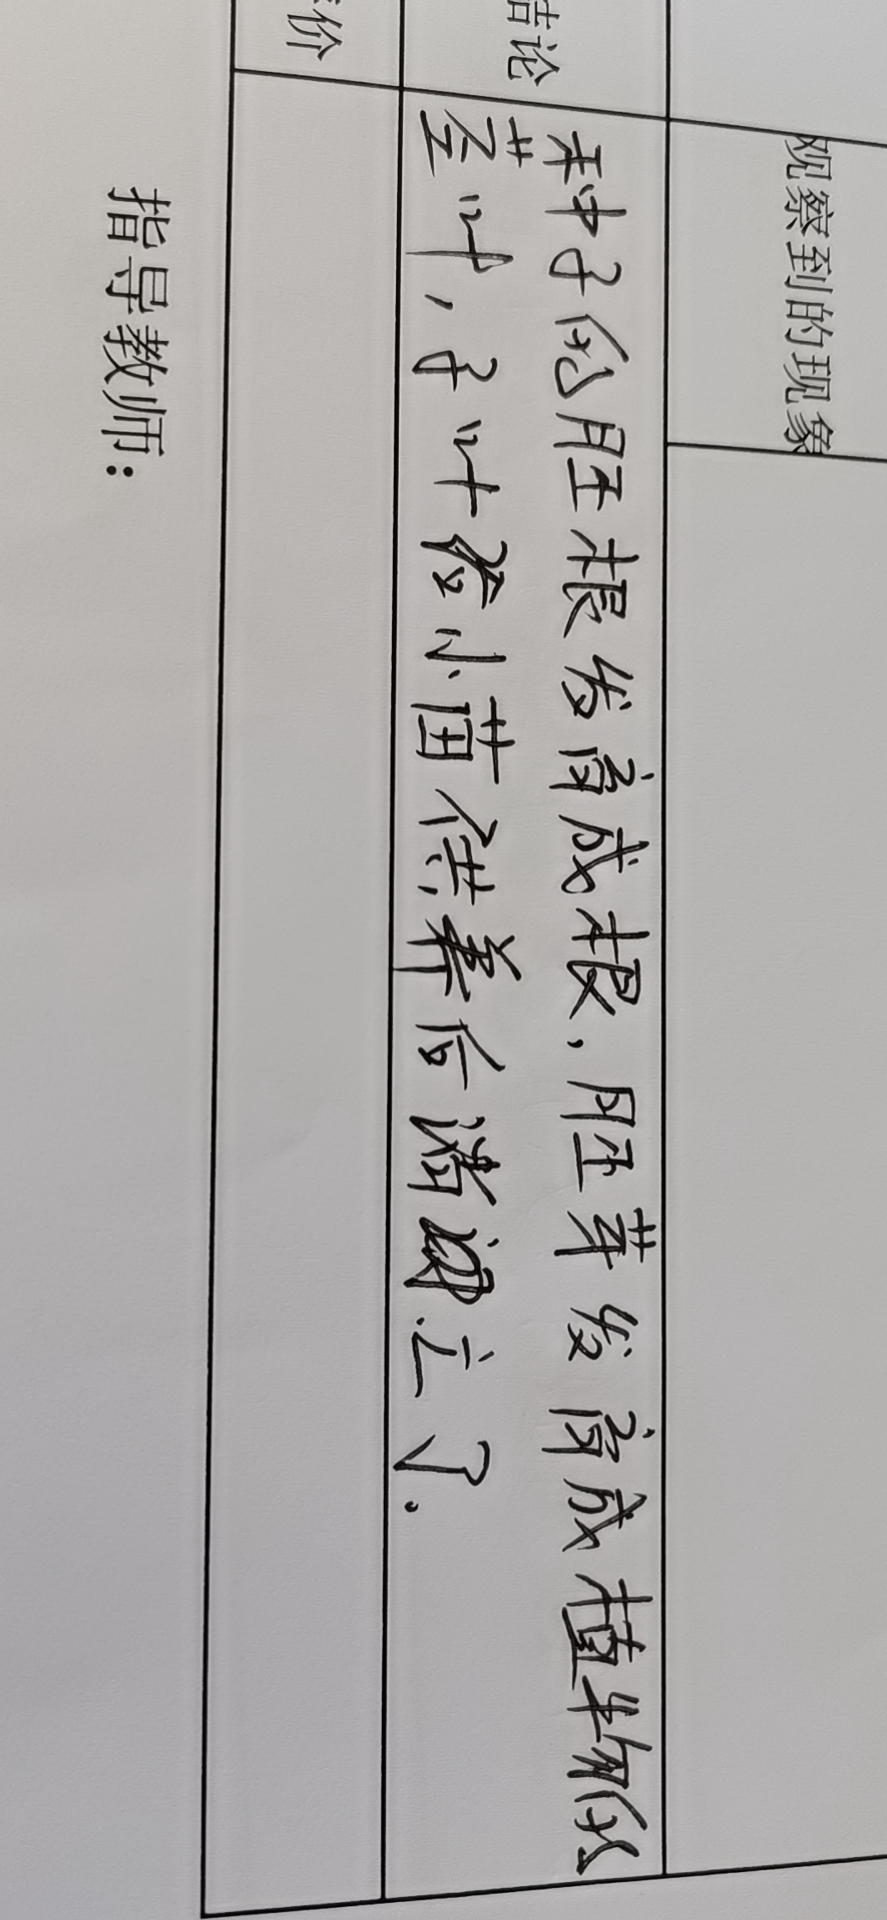 观察到的现象
结论
种子的胚根发育成根，胚芽发育成植物的
茎叶，子叶给小苗供养后潜立了。
价
指导教师：